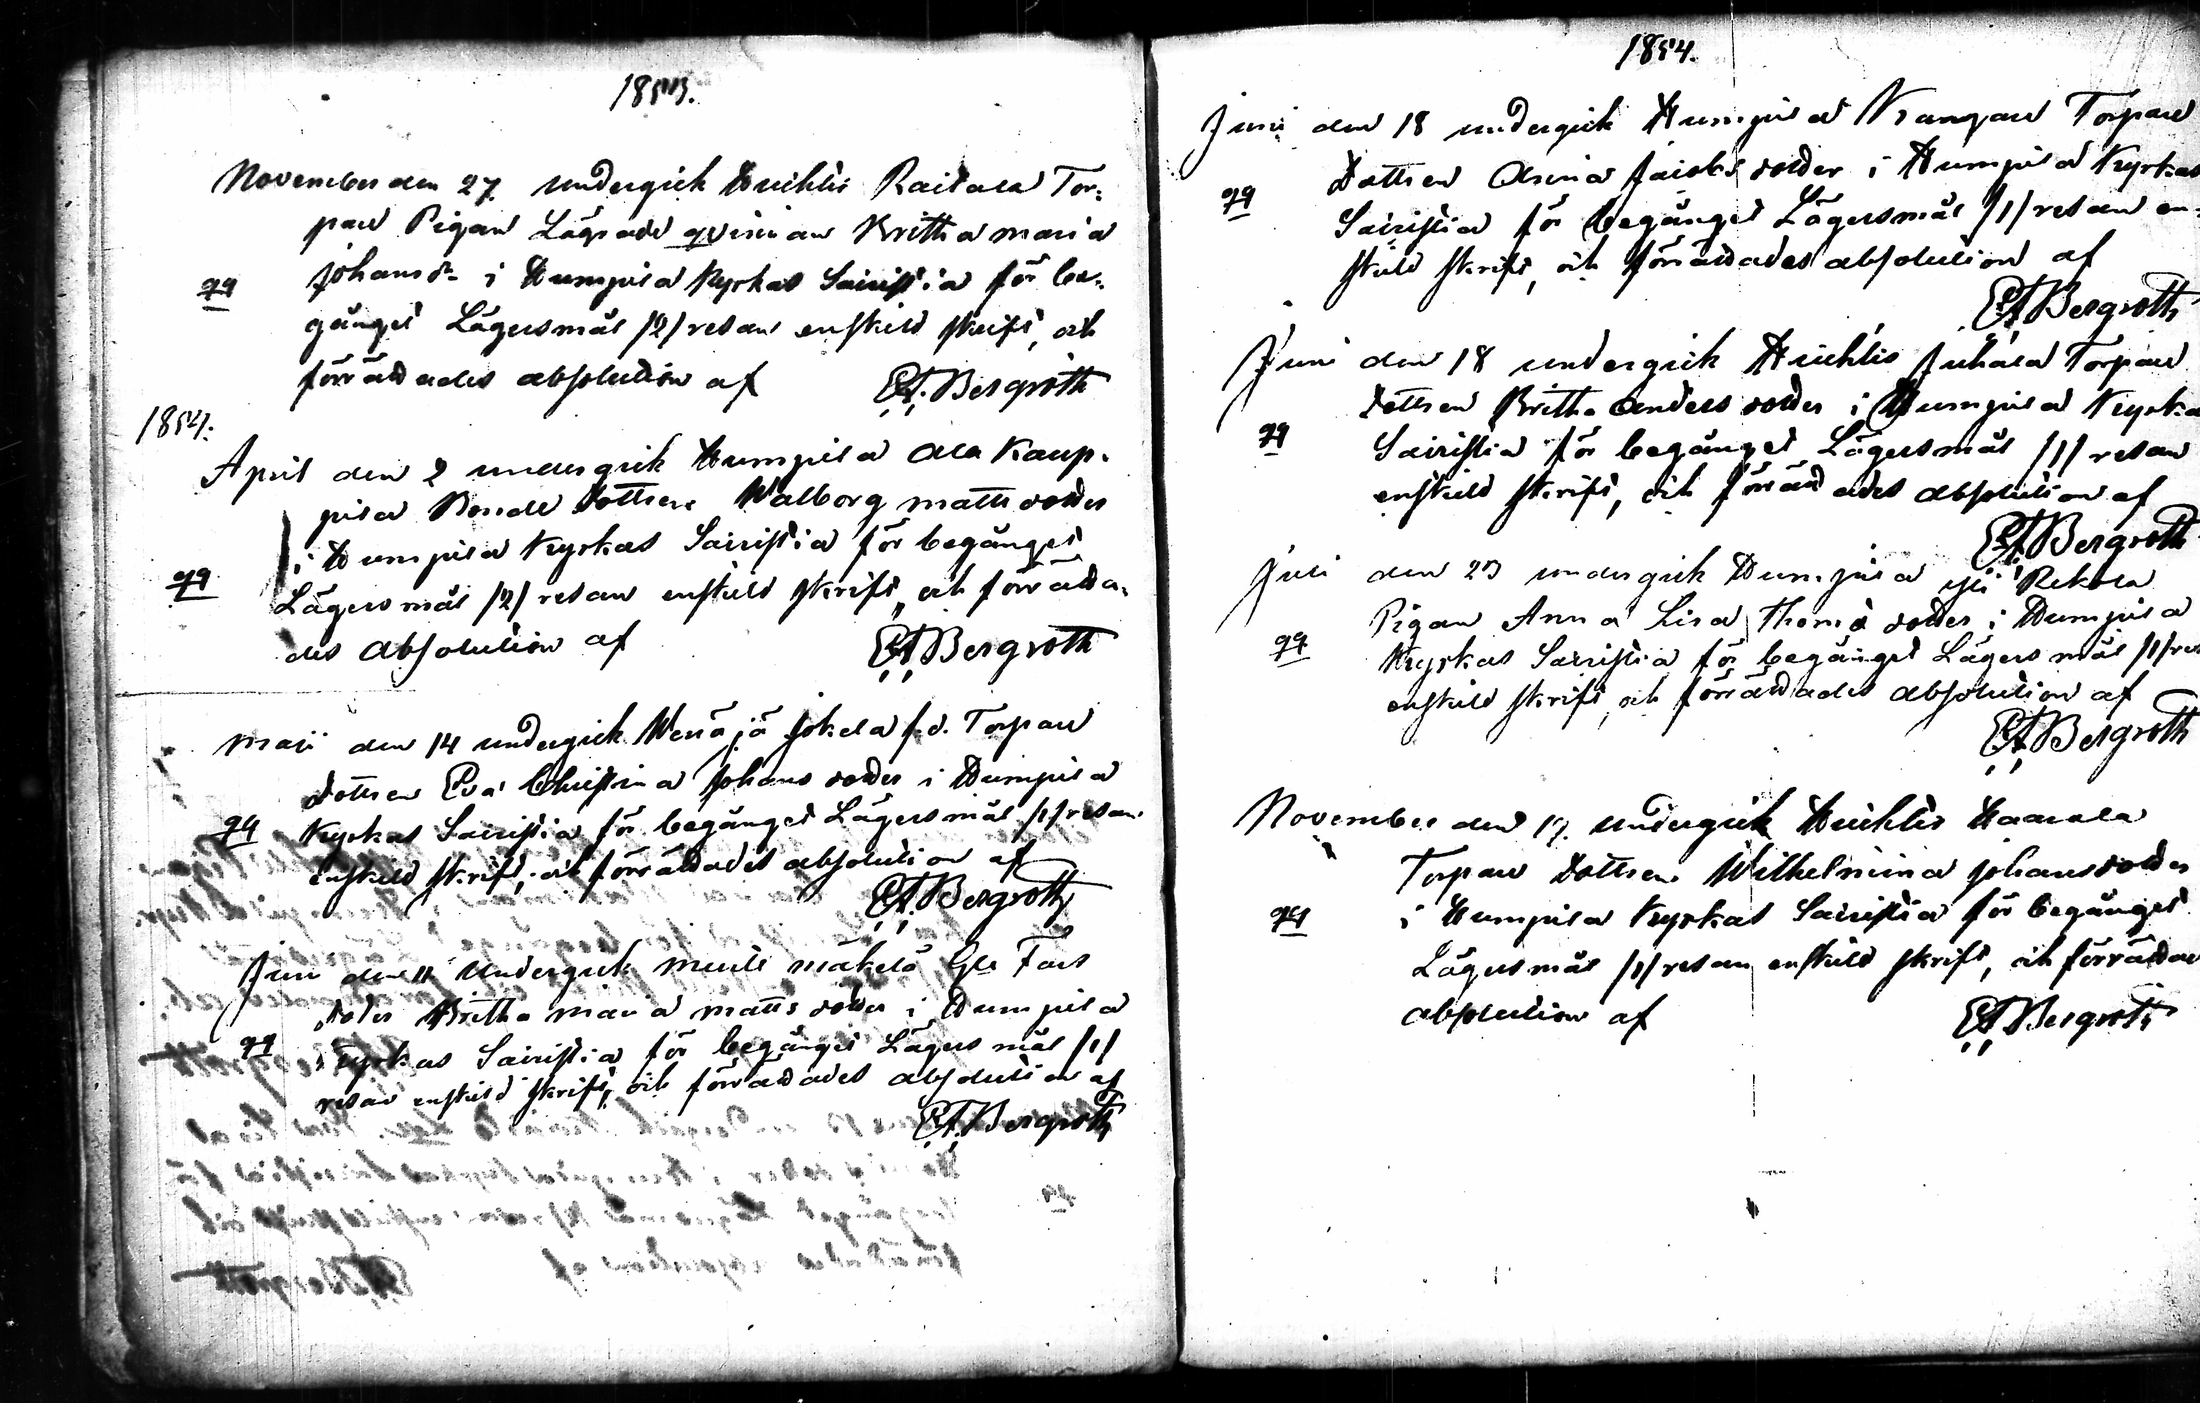 1853.
November den 27. undergick Huichlis Raitala Tor-
paw Pigan Lägrade qvinnan Britha Maria
qq Johansd: i Humpila Kyrkas Sacristia för be-
gånget Lägersmål /2/ resan enskild skrift, och
förrättades absolution af EA. Bergroth
1854.
April den 2 undergick Humpila Ala Kaup-
pila Bonde dottren Walborg Matts dotter
i Humpila Kyrkas Sacristia för begånget
qq Lägersmål /2/ resan enskild skrift, och förrätta-
des absolution af EA Bergroth
Maji den 14 undergick Wenäjä Jokela f.d. Torpare
dottren Eva Christina Johans dotter i Humpila
qq Kyrkas Sacristia för begånget Lägersmål /1/ resan
enskild skrift, och förrättades absolution af
EA. Bergroth
Juni den 11 undergick Murto Mäkelä
doter Britha Maria Matts dotter i Humpila
qq Kyrkas Sacristia för begånget Lägersmål /1/
resan enskild skrift, och förrättades absolution af
EA. Bergroth
1854.
Juni den 18 undergick Humpila Kangas Torpare
qq Dottren Alvina Jacobs dotter i Humpila Kyrkas
Sacristia för begånget Lägersmål /1/ resan en-
skild skrift, och förrättades absolution af
EA Bergroth
Juni den 18 undergick Huichlis Juhala Torpare
dottren Britha Anders dotter i Humpila Kyrka
qq Sacristia för begånget Lägersmål /1/ resan
enskild skrift, och förrättades absolution af
EA Bergroth
Juli den 23 undergick Humpila Yli Rekola
qq Pigan Anna Lisa Thomä dotter i Humpila
Kyrkas Sacristia för begånget Lägersmål /1/ res
enskild skrift, och förrättades absolution af
EA Bergroth
November den 17. undergick Huichlis Haarala
Torpare dottren Wilhelmina Johansdotter
qq i Humpila Kyrkas Sacristia för begånget
Lägersmål /1/ resan enskild skrift, och förrättad
absolution af EA Bergroth